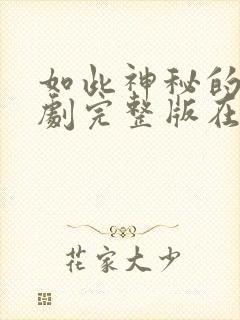 如此神秘的
劇完整版在
花家大少